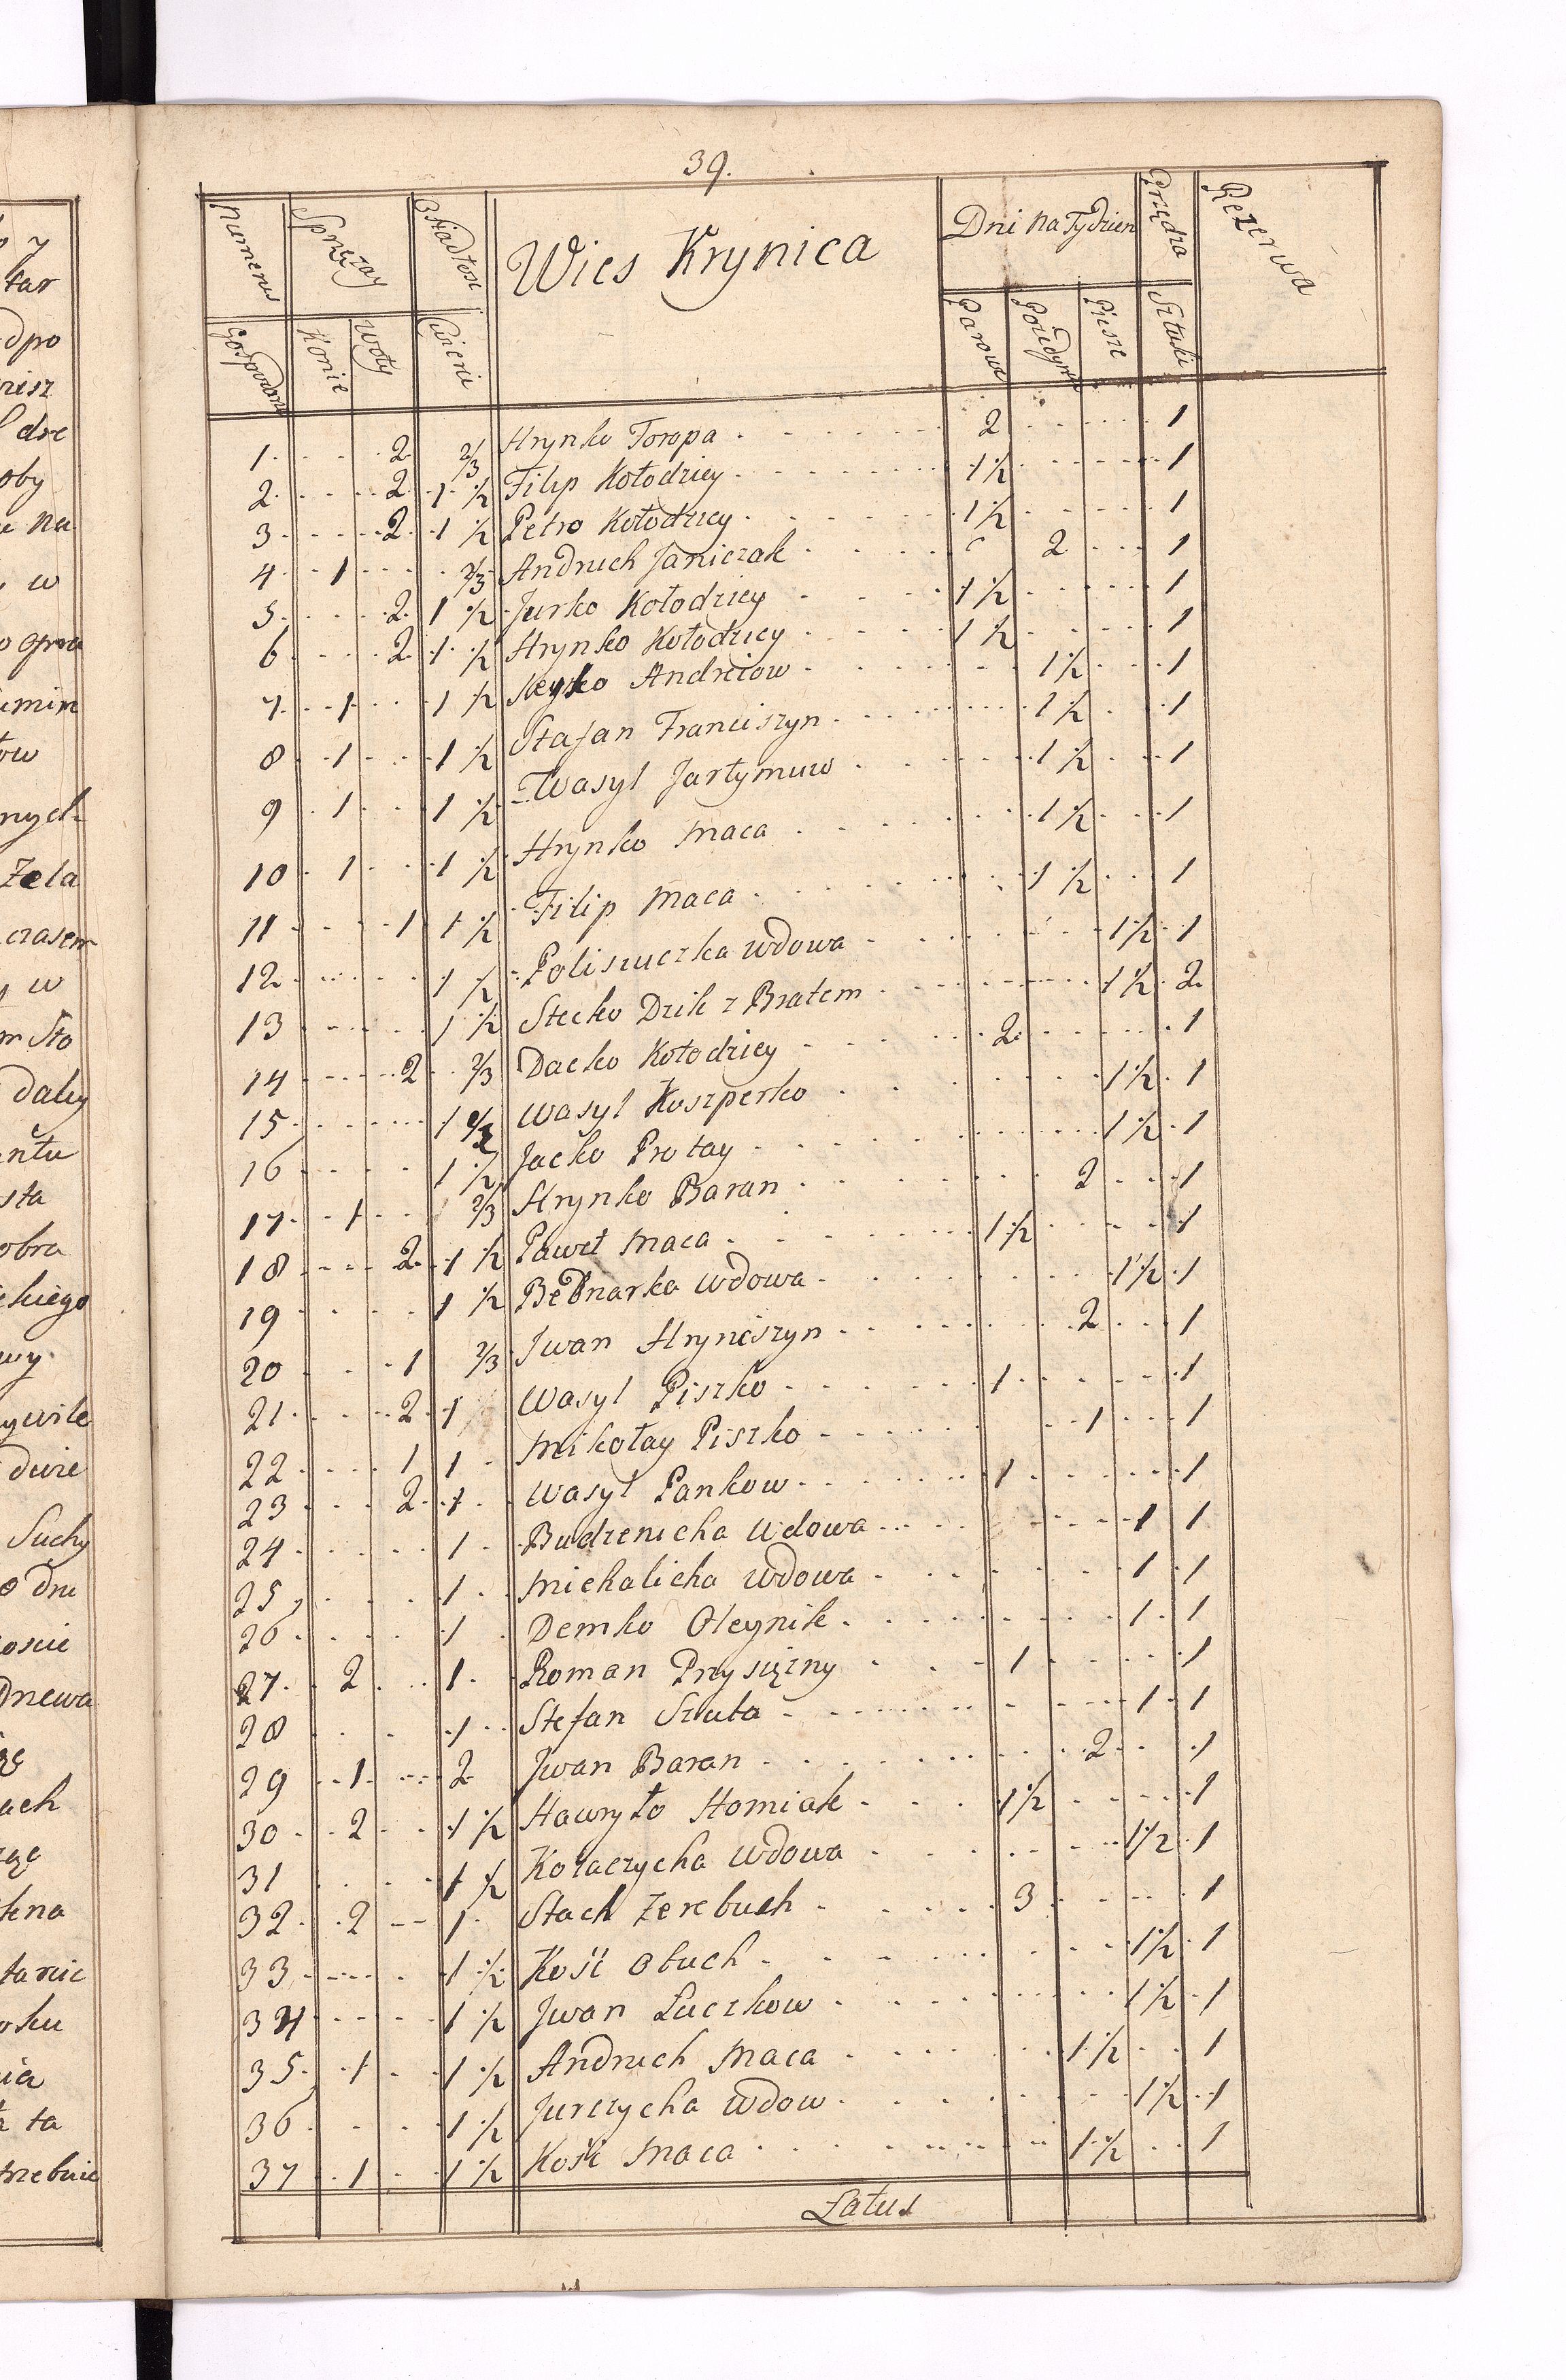 39.
Numerus Sprzężay Osiadłosc Wies Krynica Dni na Tydzien Przędza Rezerwa
Gospodarz Konie Woły Cwierci Parowe Poiedyn Piesze Sztuki
1 2 2/3 Hrynko Toropa 2 1
2 2 1 ½ Filip Kołodziey 1 ½ 1
3 2 1 ½ Petro Kołodziey 1 ½ 1
4 1 2/3 Andruch Janiczak 2 1
5 2 1 ½ Jurko Kołodziey 1 ½ 1
6 2 1 ½ Hrynko Kołodziey 1 ½ 1
7 1 1 ½ Andreiow 1 ½ 1
8 1 1 ½ Stafan Franciszyn 1 ½ 1
9 1 1 ½ Wasyl Jartymuw 1 ½ 1
10 1 1 ½ Hrynko Maca 1 ½ 1
11 1 1 ½ Filip Maca 1 ½ 1
12 1 ½ Poliszuczka wdowa 1 ½ 1
13 1 ½ Stecko Dzik z Bratem 1 ½ 2
14 2 2/3 Dacko Kołodziey 2 1
15 1 ½ Wasyl Koszperko 1 ½ 1
16 1 ½ Jacko Protay 1 ½ 1
17 1 2/3 Hrynko Baran 2 1
18 2 1 ½ Paweł Maca 1 ½ 1
19 1 ½ Bednarka wdowa 1 ½ 1
20 1 2/3 Jwan Hrynciszyn 2 1
21 2 1 Wasyl Piszko 1 1
22 1 1 Mikołay Piszko 1 1
23 2 1 Wasyl Pankow 1 1
24 1 Budzenicha wdowa 1 1
25 1 Michalicha wdowa 1 1
26 1 Demko Oleynik 1 1
27 2 1 Roman Przysiężny 1 1
28 1 Stefan Szuta 1 1
29 1 2 Jwan Baran 2 1
30 2 1 ½ Hawryło Homiak 1 ½ 1
31 1 ½ Kozaczycha wdowa 1 ½ 1
32 2 1 Stach Zerebuch 3 1
33 1 ½ Kość Obuch 1 ½ 1
34 1 ½ Jwan Luczkow 1 ½ 1
35 1 1 ½ Andruch Maca 1 ½ 1
36 1 ½ Jurczycha wdow 1 ½ 1
37 1 1 ½ Kość Maca 1 ½ 1
Latus